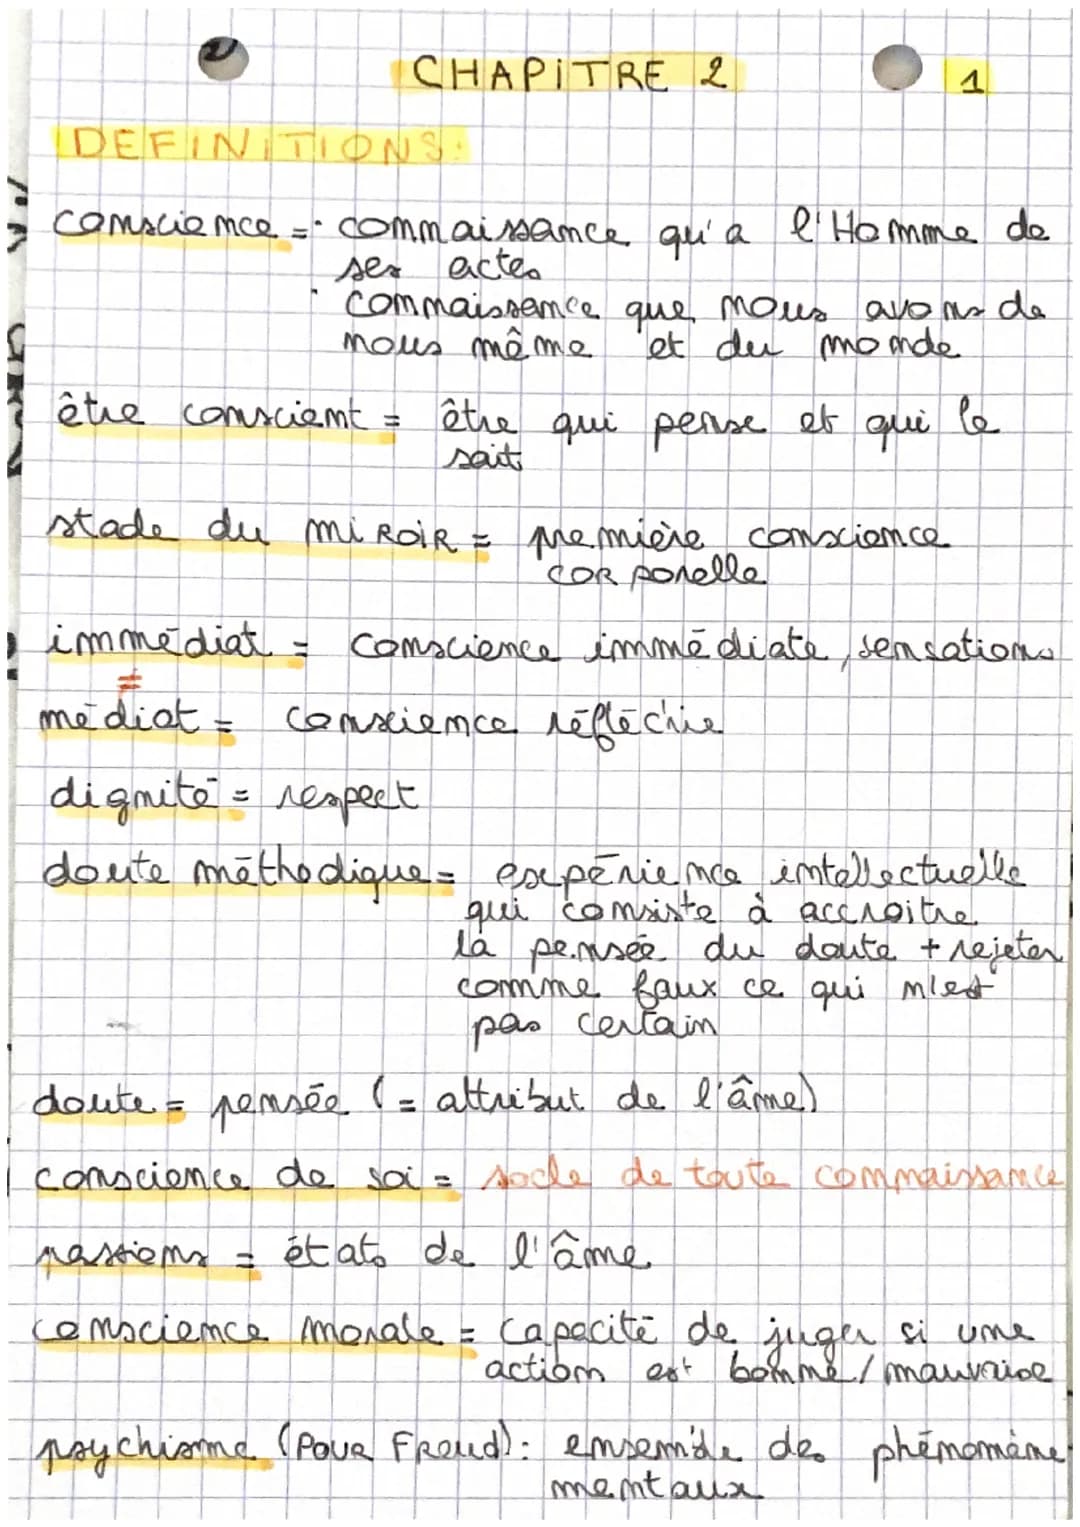 CHAPITRE 2
1
DEFINITIONS:
conscience = · connaissance qu'a l'Homme de
ses actes
· connaissance que nous avons de
nous même et du monde
être conscient = être qui pense et qui le
sait
stade du miROiR = première conscience
corporelle
immédiat = conscience immédiate, sensations
≠
médiat = conscience réfléchie
dignité = respect
doute méthodique = expérience intellectuelle
qui consiste à accroitre
la pensée du doute + rejeter
comme faux ce qui n'est
pas certain
doute = pensée (= attribut de l'âme)
conscience de soi = socle de toute connaissance
passions = états de l'âme
conscience morale = capacité de juger si une
action est bonne / mauvaise
psychisme (POUR FREUD): ensemble des phénomène
mentaux